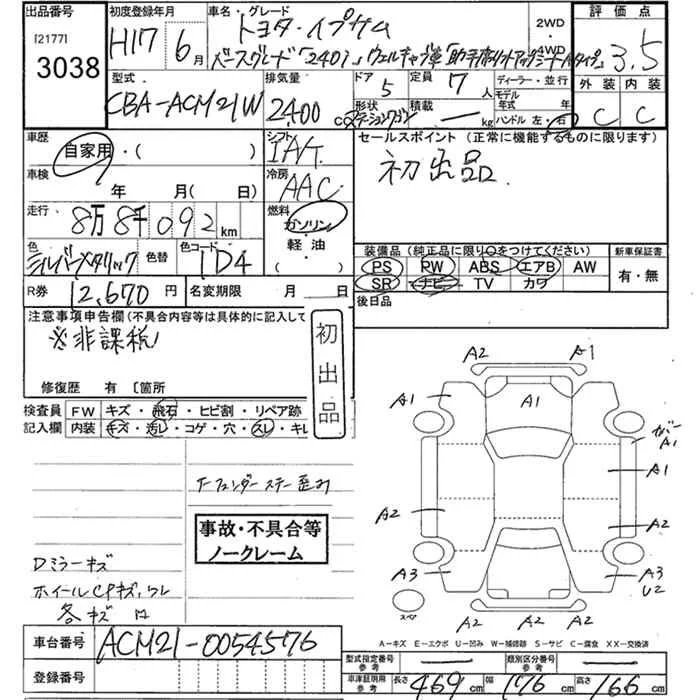 出品番号 初度登録年月 車名・グレード 評価点
[2177] 3038 H17年 6月 トヨタ・イプサム 2WD・4WD 3.5
ベースグレード「240i」ウェルキャブ車「助手席リフトアップシートAタイプ」
型式 排気量 ドア 定員 ディーラー・並行 外装 内装
CBA-ACM21W 2400cc 5 7人 モデル年式 年 C C
形状 ステーションワゴン 積載 ― kg ハンドル 左・右
車歴 シフト セールスポイント (正常に機能するものに限ります)
自家用・( ) IAT 初出品
車検 年 月(日) 冷房 AAC
走行 8万8千092km 燃料 ガソリン
色 色替 色コード 軽・油 装備品 (純正品に限り○をつけてください) 新車保証書
シルバーメタリック 1D4 ( ) PS PW ABS エアB AW 有・無
SR ナビ TV カワ
R券 12,670円 名変期限 月 日 後日品
注意事項申告欄(不具合内容等は具体的に記入して
※非課税 初出品
修復歴 有 [箇所
検査員 FW キズ・飛石・ヒビ割・リペア跡
記入欄 内装 キズ・汚レ・コゲ・穴・スレ・キレ
A2 A1
A1 A1
A1
A1
A2 A2
A3 A3
U2
スペア
A2 A2 A2
フェンダーステー歪み
事故・不具合等
ノークレーム
Dミラーキズ
ホイールCPキズ、ワレ
各キズ
A-キズ E-エクボ U-凹み W-補修跡 S-サビ C-腐食 XX-交換済
車台番号 ACM21-0054576 型式指定番号参考 ― 類別区分番号参考 ―
登録番号 車庫証明用参考 長さ 469cm 幅 176cm 高さ 166cm